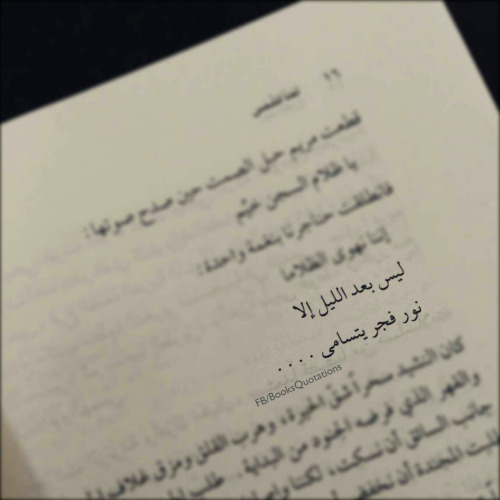 ٦٦
قطعت مريم حبل الصمت حين صدح صوتها:
يا ظلام السجن خيّم
فانطلقت حناجرنا بنغمة واحدة:
إننا نهوى الظلاما
ليس بعد الليل إلا
نور فجر يتسامى ....
FB/BooksQuotations
كان النشيد سحراً شق الحيرة، وهرب القلق ومزق غلاف
والقهر الذي فرضه الجنود من البداية. طلب
جانب السائق أن نسكت، لكننا
المجندة أن